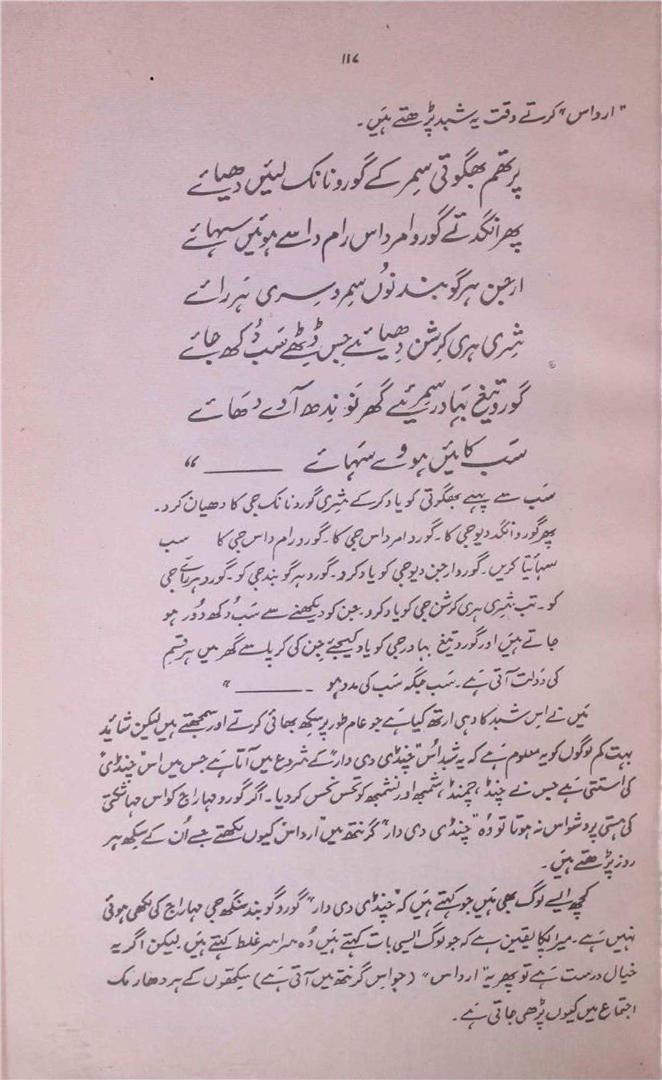 ۱۱۷
"ارداس" کرتے وقت یہ شبد پڑھتے ہیں۔
پرتھم بھگوتی سمر کے گورو نانک لئیں دھیائے
پھر انگد تے گورو امرداس رام داسے ہوئیں سہائے
ارجن ہرگوبند نوں سمرو سری ہر رائے
شری ہری کرشن دھیائیے جس ڈِٹھے سب دُکھ جائے
گورو تیغ بہادر سمریئے گھر نَو نِدھ آوے دھائے
سب تھائیں ہووے سہائے ــــــ "
سب سے پہلے بھگوتی کو یاد کر کے شری گورو نانک جی کا دھیان کرو۔
پھر گورو انگد دیو جی کا۔ گورو امرداس جی کا۔ گورو رام داس جی کا سب
سہائتا کریں۔ گورو ارجن دیو جی کو یاد کرو۔ گورو ہرگوبند جی کو۔ گورو ہررائے جی
کو۔ تب شری ہری کرشن جی کو یاد کرو۔ جن کو دیکھنے سے سب دُکھ دُور ہو
جاتے ہیں اور گورو تیغ بہادر جی کو یاد کیجئے جن کی کرپا سے گھر میں ہر قسم
کی دَولت آتی ہے۔ سب جگہ سب کی مدد ہو ۔ ــــــ "
مَیں نے اِس شبد کا وہی ارتھ کیا ہے جو عام طور پر سِکھ بھائی کرتے اور سمجھتے ہیں لیکن شائد
بہت کم لوگوں کو یہ معلوم ہے کہ یہ شبد اُس "چنڈی دی وار" کے شروع میں آتا ہے جس میں اس چنڈی
کی استتی ہے جس نے چنڈ، چمنڈ، شمبھ اور نشمبھ کو تہس نہس کر دیا۔ اگر گورو مہاراج کو اس مہا شکتی
کی ہستی پر وشواس نہ ہوتا تو وُہ "چنڈی دی وار" گرنتھ میں "ارداس" کیوں لکھتے جسے اُن کے سِکھ ہر
روز پڑھتے ہیں۔
کچھ ایسے لوگ بھی ہیں جو کہتے ہیں کہ "چنڈی دی وار" گورو گوبند سنگھ جی مہاراج کی لکھی ہوئی
نہیں ہے۔ میرا پکا یقین ہے کہ جو لوگ ایسی بات کہتے ہیں وُہ سراسر غلط کہتے ہیں۔ لیکن اگر یہ
خیال درست ہے تو پھر یہ "ارداس" (جو اس گرنتھ میں آتی ہے) سِکھوں کے ہر دھارمک
اجتماع میں کیوں پڑھی جاتی ہے۔